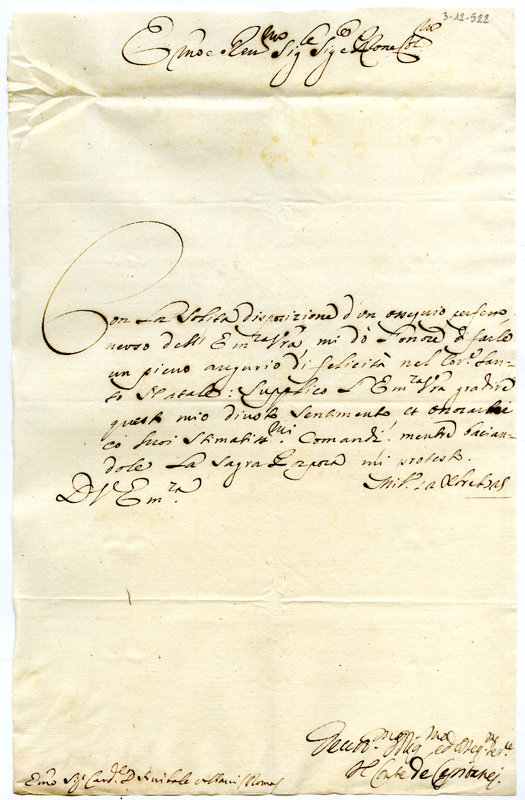 3-12-522
Emo e Revmo Sigre Sigre Prone Colmo
Con la solita disposizione d'un ossequio
verso dell' Emza Vra mi dò l'onore di farle
un pieno augurio di felicità nel San-
to Natale: Supplico l'Emza Vra gradire
questo mio divoto sentimento et onorarmi
có suoi stimatissmi Comandi: mentre bacian-
dole la sagra Porpora mi protesto.
D V Emza
Il Conte de
Emo Sigr Cardle Annibale Albani Roma